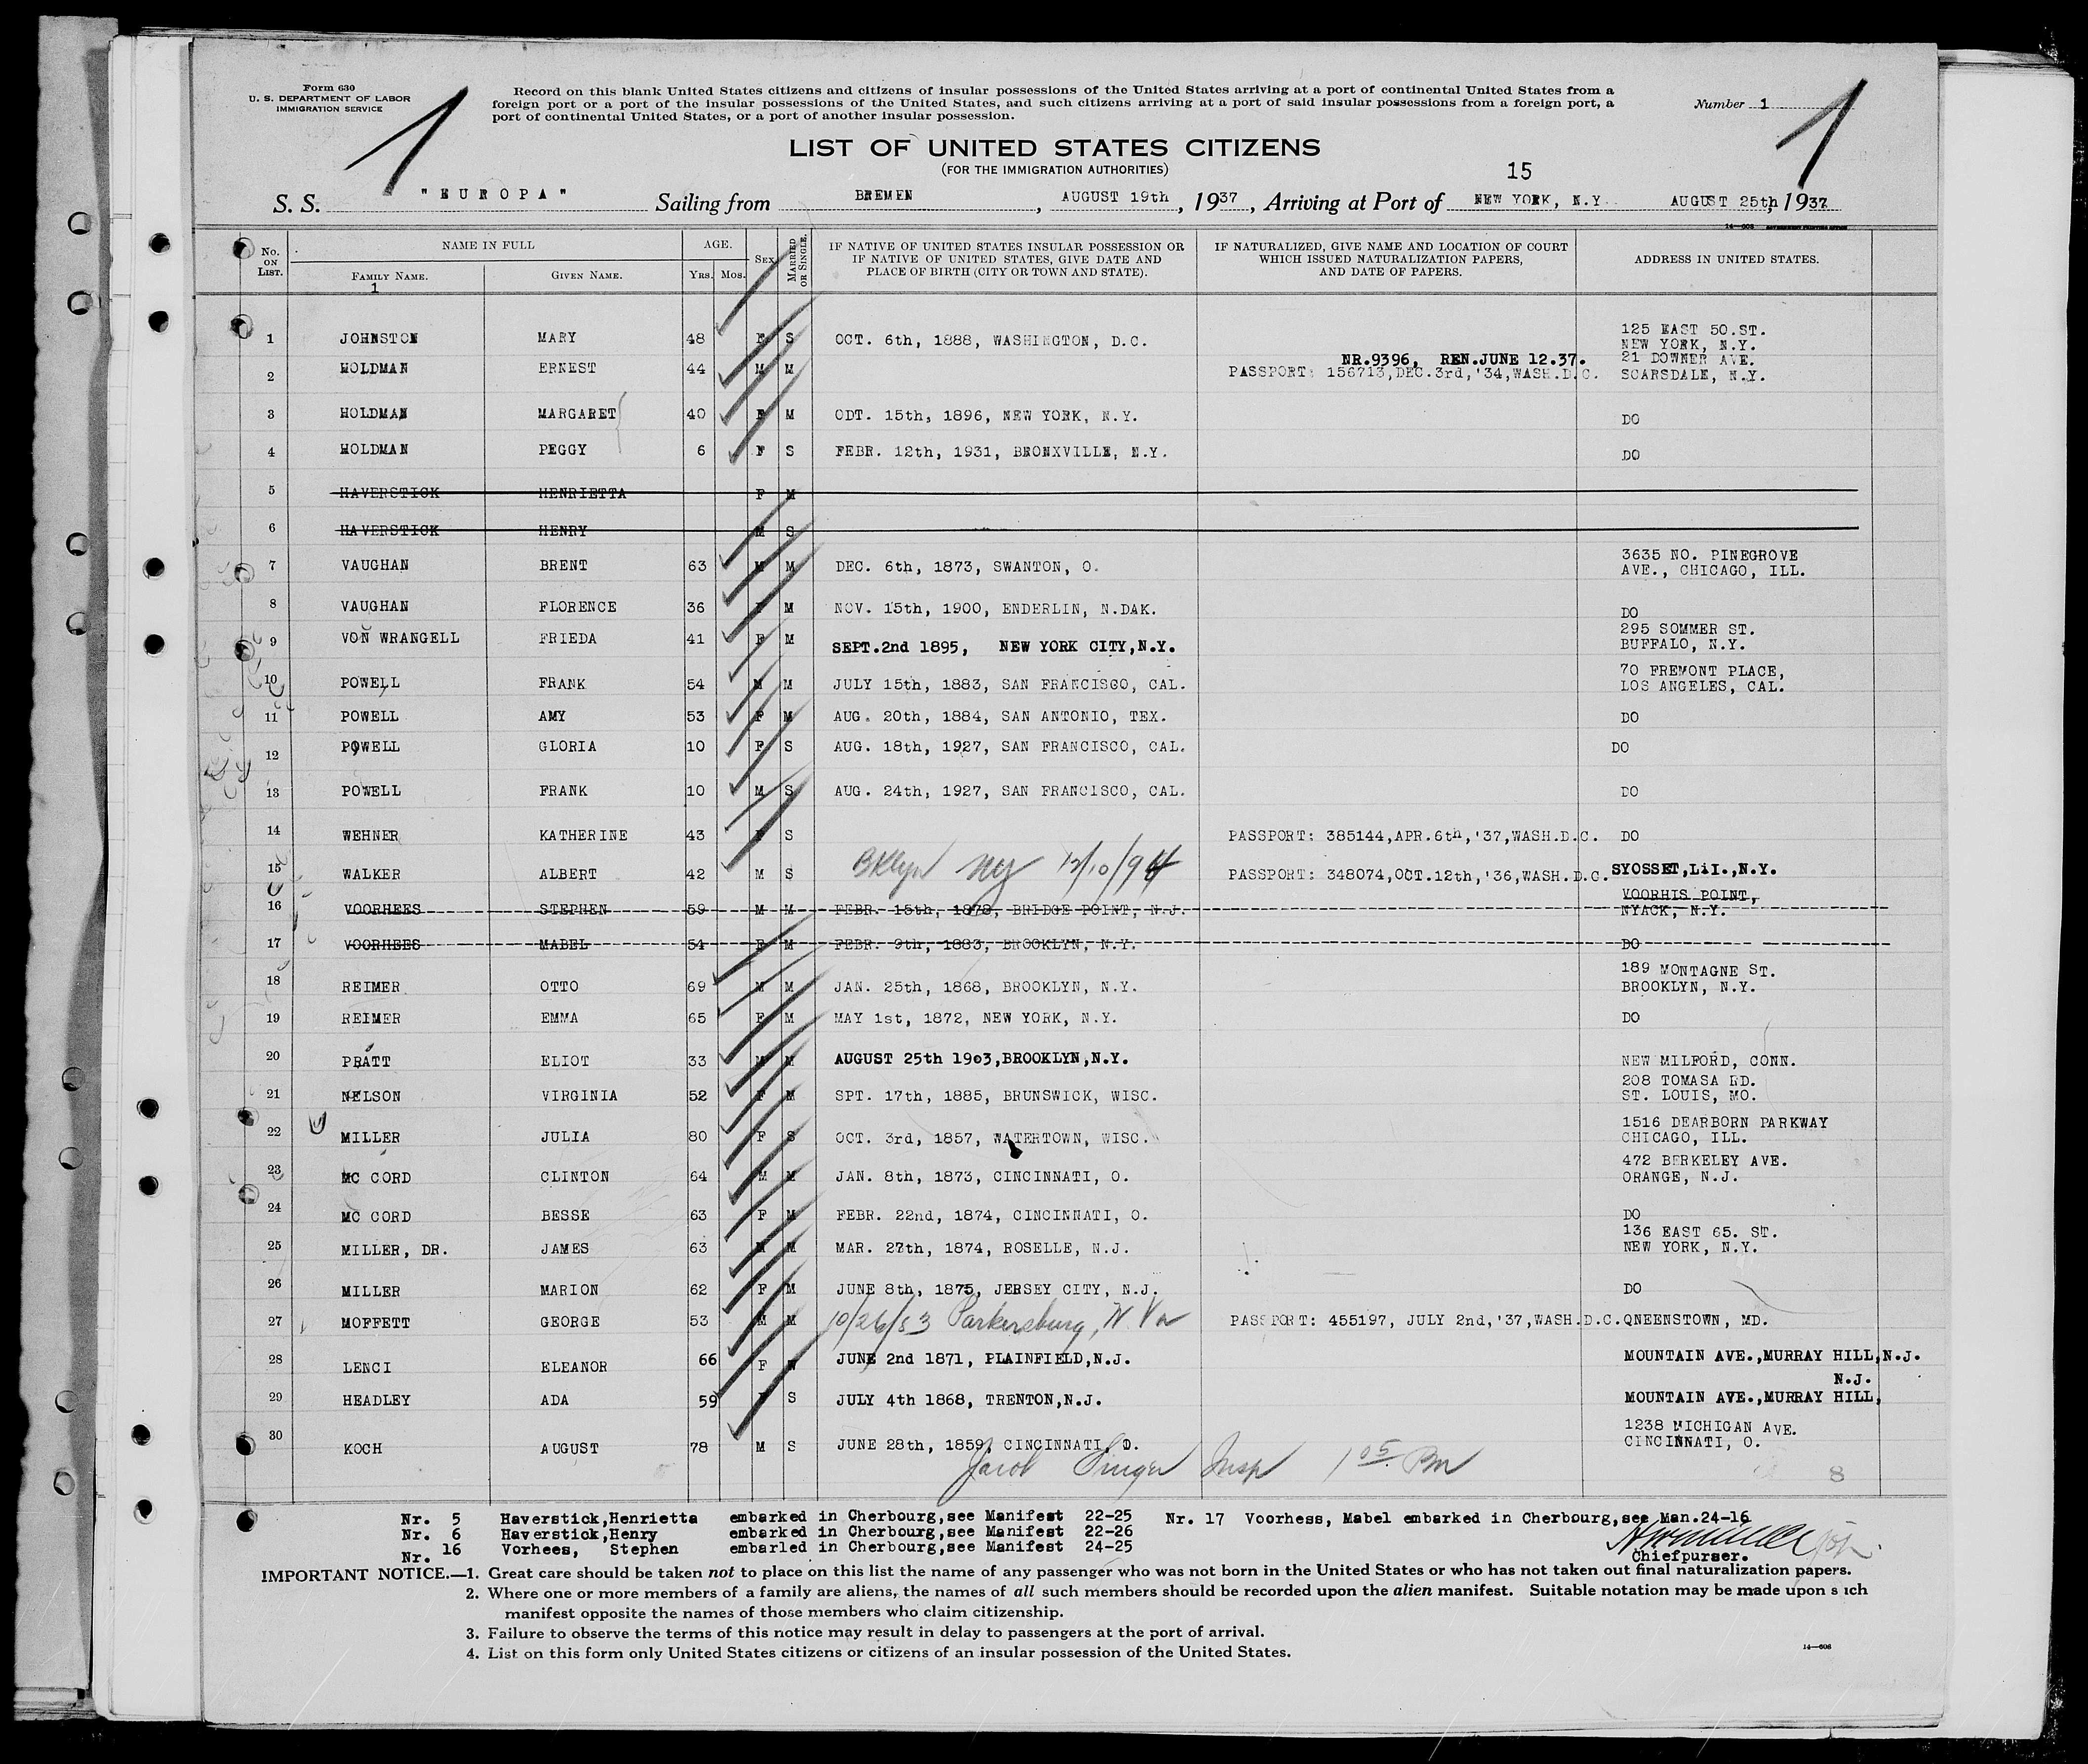 Form 630
U. S. DEPARTMENT OF LABOR
IMMIGRATION SERVICE
1
Record on this blank United States citizens and citizens of insular possessions of the United States arriving at a port of continental United States from a
foreign port or a port of the insular possessions of the United States, and such citizens arriving at a port of said insular possessions from a foreign port, a
port of continental United States, or a port of another insular possession.
Number 1
1
LIST OF UNITED STATES CITIZENS
(FOR THE IMMIGRATION AUTHORITIES)
15
S. S. "EUROPA" Sailing from BREMEN, AUGUST 19th, 1937, Arriving at Port of NEW YORK, N.Y. AUGUST 25th, 1937
14—608
No. ON LIST. NAME IN FULL FAMILY NAME. GIVEN NAME. AGE. YRS. MOS. SEX MARRIED OR SINGLE. IF NATIVE OF UNITED STATES INSULAR POSSESSION OR IF NATIVE OF UNITED STATES, GIVE DATE AND PLACE OF BIRTH (CITY OR TOWN AND STATE). IF NATURALIZED, GIVE NAME AND LOCATION OF COURT WHICH ISSUED NATURALIZATION PAPERS, AND DATE OF PAPERS. ADDRESS IN UNITED STATES.
1
1 JOHNSTON MARY 48 F S OCT. 6th, 1888, WASHINGTON, D.C. 125 EAST 50.ST. NEW YORK, N.Y.
2 HOLDMAN ERNEST 44 M M NR.9396, REN.JUNE 12.37. PASSPORT: 156713,DEC.3rd,'34,WASH.D.C. 21 DOWNER AVE. SCARSDALE, N.Y.
3 HOLDMAN MARGARET 40 F M ODT. 15th, 1896, NEW YORK, N.Y. DO
4 HOLDMAN PEGGY 6 F S FEBR. 12th, 1931, BRONXVILLE, N.Y. DO
5 HAVERSTICK HENRIETTA F M
6 HAVERSTICK HENRY M S
7 VAUGHAN BRENT 63 M M DEC. 6th, 1873, SWANTON, O. 3635 NO. PINEGROVE AVE., CHICAGO, ILL.
8 VAUGHAN FLORENCE 36 F M NOV. 15th, 1900, ENDERLIN, N.DAK. DO
9 VON WRANGELL FRIEDA 41 F M SEPT.2nd 1895, NEW YORK CITY,N.Y. 295 SOMMER ST. BUFFALO, N.Y.
10 POWELL FRANK 54 M M JULY 15th, 1883, SAN FRANCISCO, CAL. 70 FREMONT PLACE, LOS ANGELES, CAL.
11 POWELL AMY 53 F M AUG. 20th, 1884, SAN ANTONIO, TEX. DO
12 POWELL GLORIA 10 F S AUG. 18th, 1927, SAN FRANCISCO, CAL. DO
13 POWELL FRANK 10 M S AUG. 24th, 1927, SAN FRANCISCO, CAL. DO
14 WEHNER KATHERINE 43 F S PASSPORT: 385144,APR.6th,'37,WASH.D.C. DO
15 WALKER ALBERT 42 M S Bklyn NY 12/10/94 PASSPORT: 348074,OCT.12th,'36,WASH.D.C. SYOSSET,LiI.,N.Y.
16 VOORHEES STEPHEN 59 M M FEBR. 15th, 1878, BRIDGE POINT, N.J. VOORHIS POINT, NYACK, N.Y.
17 VOORHEES MABEL 54 F M FEBR. 9th, 1883, BROOKLYN, N.Y. DO
18 REIMER OTTO 69 M M JAN. 25th, 1868, BROOKLYN, N.Y. 189 MONTAGNE ST. BROOKLYN, N.Y.
19 REIMER EMMA 65 F M MAY 1st, 1872, NEW YORK, N.Y. DO
20 PRATT ELIOT 33 M M AUGUST 25th 1903,BROOKLYN,N.Y. NEW MILFORD, CONN.
21 NELSON VIRGINIA 52 F M SPT. 17th, 1885, BRUNSWICK, WISC. 208 TOMASA RD. ST. LOUIS, MO.
22 MILLER JULIA 80 F S OCT. 3rd, 1857, WATERTOWN, WISC. 1516 DEARBORN PARKWAY CHICAGO, ILL.
23 MC CORD CLINTON 64 M M JAN. 8th, 1873, CINCINNATI, O. 472 BERKELEY AVE. ORANGE, N.J.
24 MC CORD BESSE 63 F M FEBR. 22nd, 1874, CINCINNATI, O. DO
25 MILLER, DR. JAMES 63 M M MAR. 27th, 1874, ROSELLE, N.J. 136 EAST 65. ST. NEW YORK, N.Y.
26 MILLER MARION 62 F M JUNE 8th, 1875, JERSEY CITY, N.J. DO
27 MOFFETT GEORGE 53 M M 10/26/83 Parkersburg, W Va PASSPORT: 455197, JULY 2nd,'37,WASH.D.C. QNEENSTOWN, MD.
28 LENCI ELEANOR 66 F W JUNE 2nd 1871, PLAINFIELD,N.J. MOUNTAIN AVE.,MURRAY HILL,N.J.
29 HEADLEY ADA 59 F S JULY 4th 1868, TRENTON,N.J. MOUNTAIN AVE.,MURRAY HILL, N.J.
30 KOCH AUGUST 78 M S JUNE 28th, 1859, CINCINNATI, O. 1238 MICHIGAN AVE. CINCINNATI, O.
Jacob Singer Insp 1 05 Pm
8
Nr. 5 Haverstick,Henrietta embarked in Cherbourg,see Manifest 22-25 Nr. 17 Voorhess, Mabel embarked in Cherbourg,see Man.24-16
Nr. 6 Haverstick,Henry embarked in Cherbourg,see Manifest 22-26
Nr. 16 Vorhees, Stephen embarled in Cherbourg,see Manifest 24-25
Chiefpurser.
IMPORTANT NOTICE.—1. Great care should be taken not to place on this list the name of any passenger who was not born in the United States or who has not taken out final naturalization papers.
2. Where one or more members of a family are aliens, the names of all such members should be recorded upon the alien manifest. Suitable notation may be made upon such
manifest opposite the names of those members who claim citizenship.
3. Failure to observe the terms of this notice may result in delay to passengers at the port of arrival.
4. List on this form only United States citizens or citizens of an insular possession of the United States.
14—608